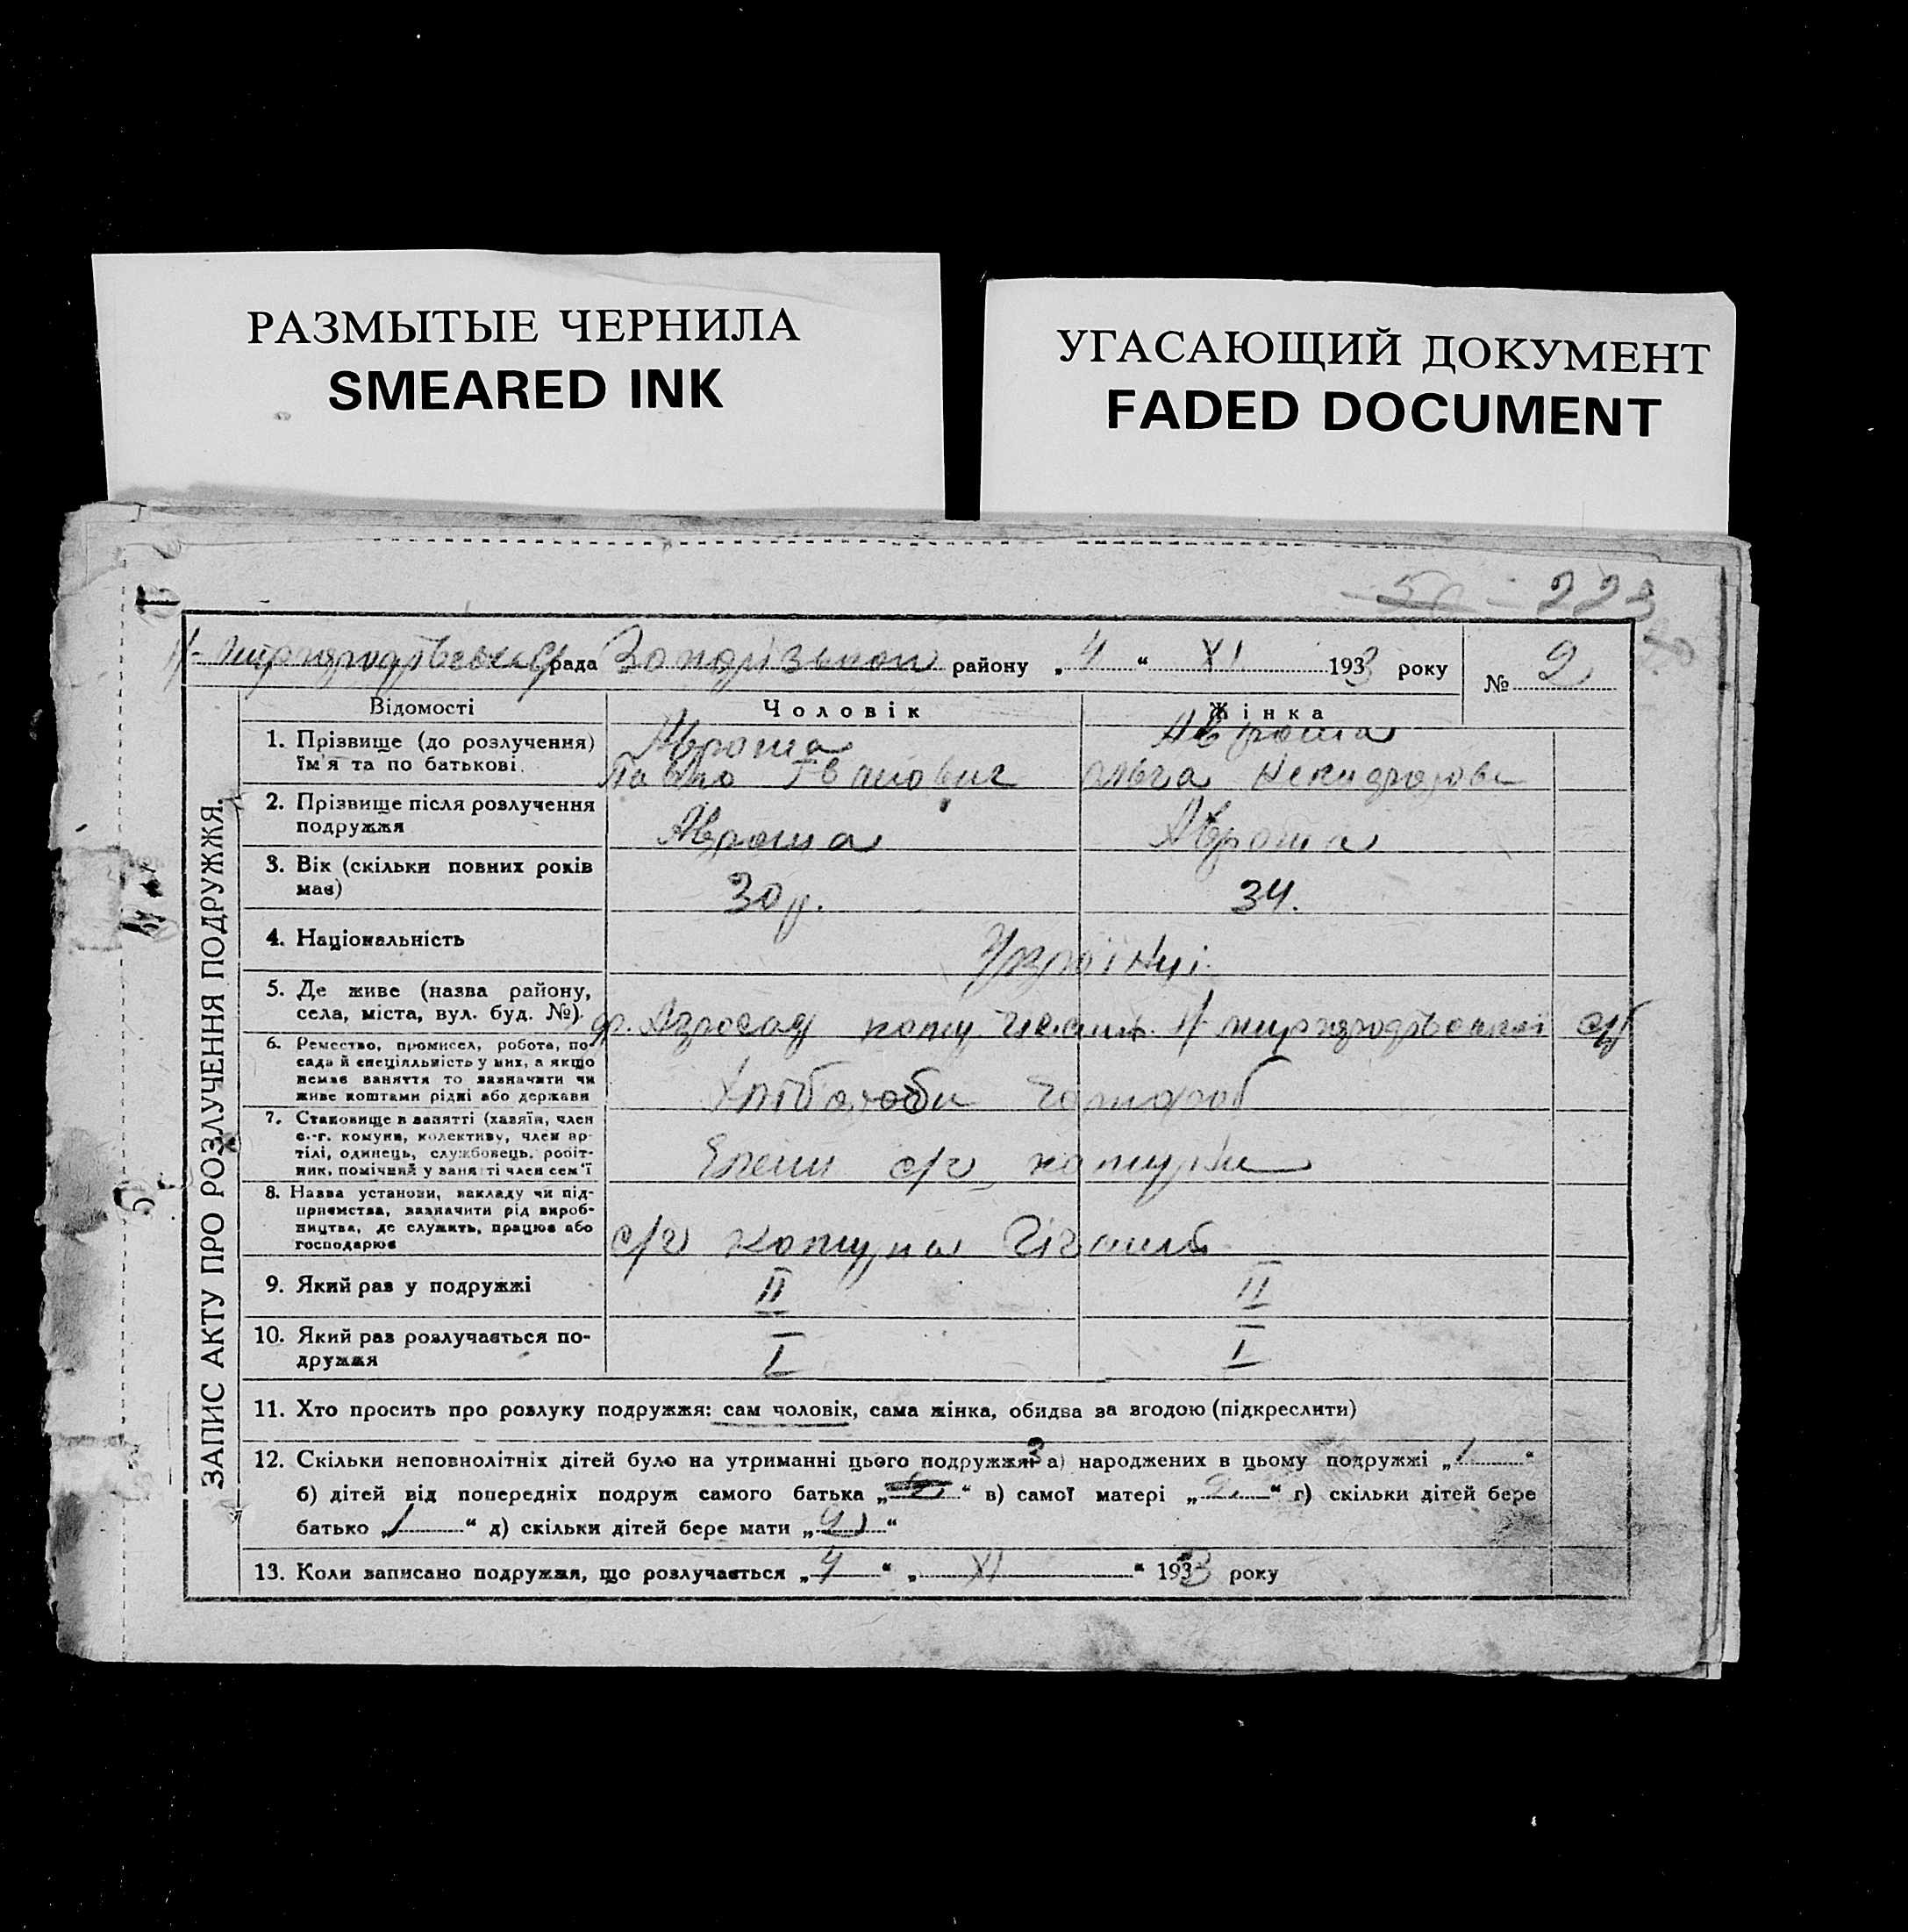 РАЗМЫТЫЕ ЧЕРНИЛА
SMEARED INK
УГАСАЮЩИЙ ДОКУМЕНТ
FADED DOCUMENT
223
рада району „4“ XI 1933 року
№ 2
ЗАПИС АКТУ ПРО РОЗЛУЧЕННЯ ПОДРУЖЖЯ.
Відомості Чоловік Жінка
1. Прізвище (до розлучення) Авроша Авроша
ім'я та по батькові. Павло Іванович Ольга
2. Прізвище після розлучення
подружжя Авроша Авроша
3. Вік (скільки повних років
має) 30 р. 34.
4. Національність Українці
5. Де живе (назва району,
села, міста, вул. буд. №). с/р
6. Ремество, промисел, робота, по-
сада й спеціяльність у них, а якщо
немає заняття то зазначити чи
живе коштами рідні або держави
7. Становище в занятті (хазяїн, член
с.-г. комуни, колективу, член ар-
тілі, одинець, службовець, робіт-
ник, помічний у занятті член сем'ї Члени с/г комуни
8. Назва установи, закладу чи під-
приємства, зазначити рід вироб-
ництва, де служить, працює або
господарює с/г комуна Гігант
9. Який раз у подружжі II II
10. Який раз розлучається по-
дружжя I I
11. Хто просить про розлуку подружжя: сам чоловік, сама жінка, обидва за згодою (підкреслити)
12. Скільки неповнолітніх дітей було на утриманні цього подружжя: 3 а) народжених в цьому подружжі „1“
б) дітей від попередніх подруж самого батька „ “ в) самої матері „2“ г) скільки дітей бере
батько „1“ д) скільки дітей бере мати „2“
13. Коли записано подружжя, що розлучається „4“ „XI“ 1933 року